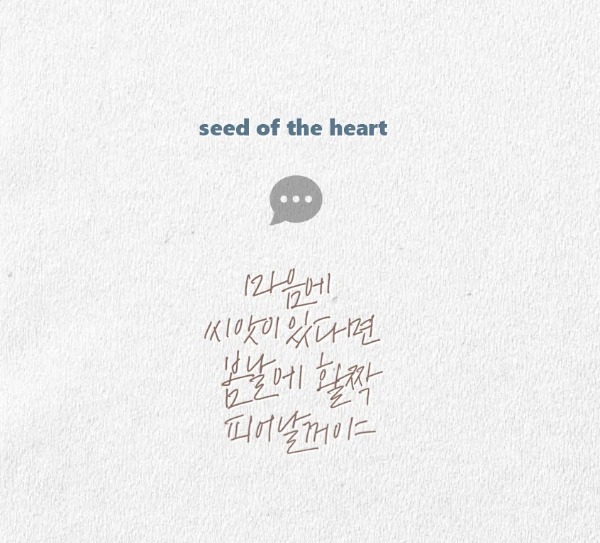 seed of the heart
마음에
씨앗이 있다면
봄날에 활짝
피어날꺼이=